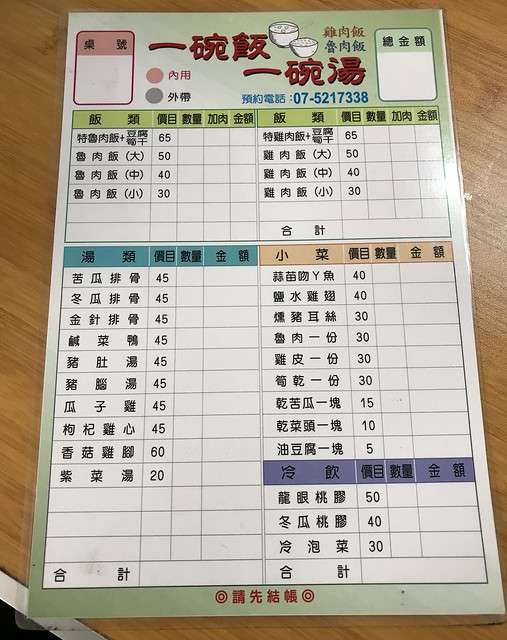 桌 號
一碗飯
一碗湯
雞肉飯
魯肉飯
總金額
內用
外帶
預約電話：07-5217338
飯 類 價目 數量 加肉 金額
特魯肉飯+豆腐筍干 65
魯肉飯(大) 50
魯肉飯(中) 40
魯肉飯(小) 30
飯 類 價目 數量 加肉 金額
特雞肉飯+豆腐筍干 65
雞肉飯(大) 50
雞肉飯(中) 40
雞肉飯(小) 30
合 計
湯 類 價目 數量 金 額
苦瓜排骨 45
冬瓜排骨 45
金針排骨 45
鹹菜鴨 45
豬肚湯 45
豬腦湯 45
瓜子雞 45
枸杞雞心 45
香菇雞腳 60
紫菜湯 20
合 計
小 菜 價目 數量 金 額
蒜苗吻ㄚ魚 40
鹽水雞翅 40
燻豬耳絲 30
魯肉一份 30
雞皮一份 30
筍乾一份 30
乾苦瓜一塊 15
乾菜頭一塊 10
油豆腐一塊 5
冷 飲 價目 數量 金 額
龍眼桃膠 50
冬瓜桃膠 40
冷泡菜 30
合 計
◎請先結帳◎